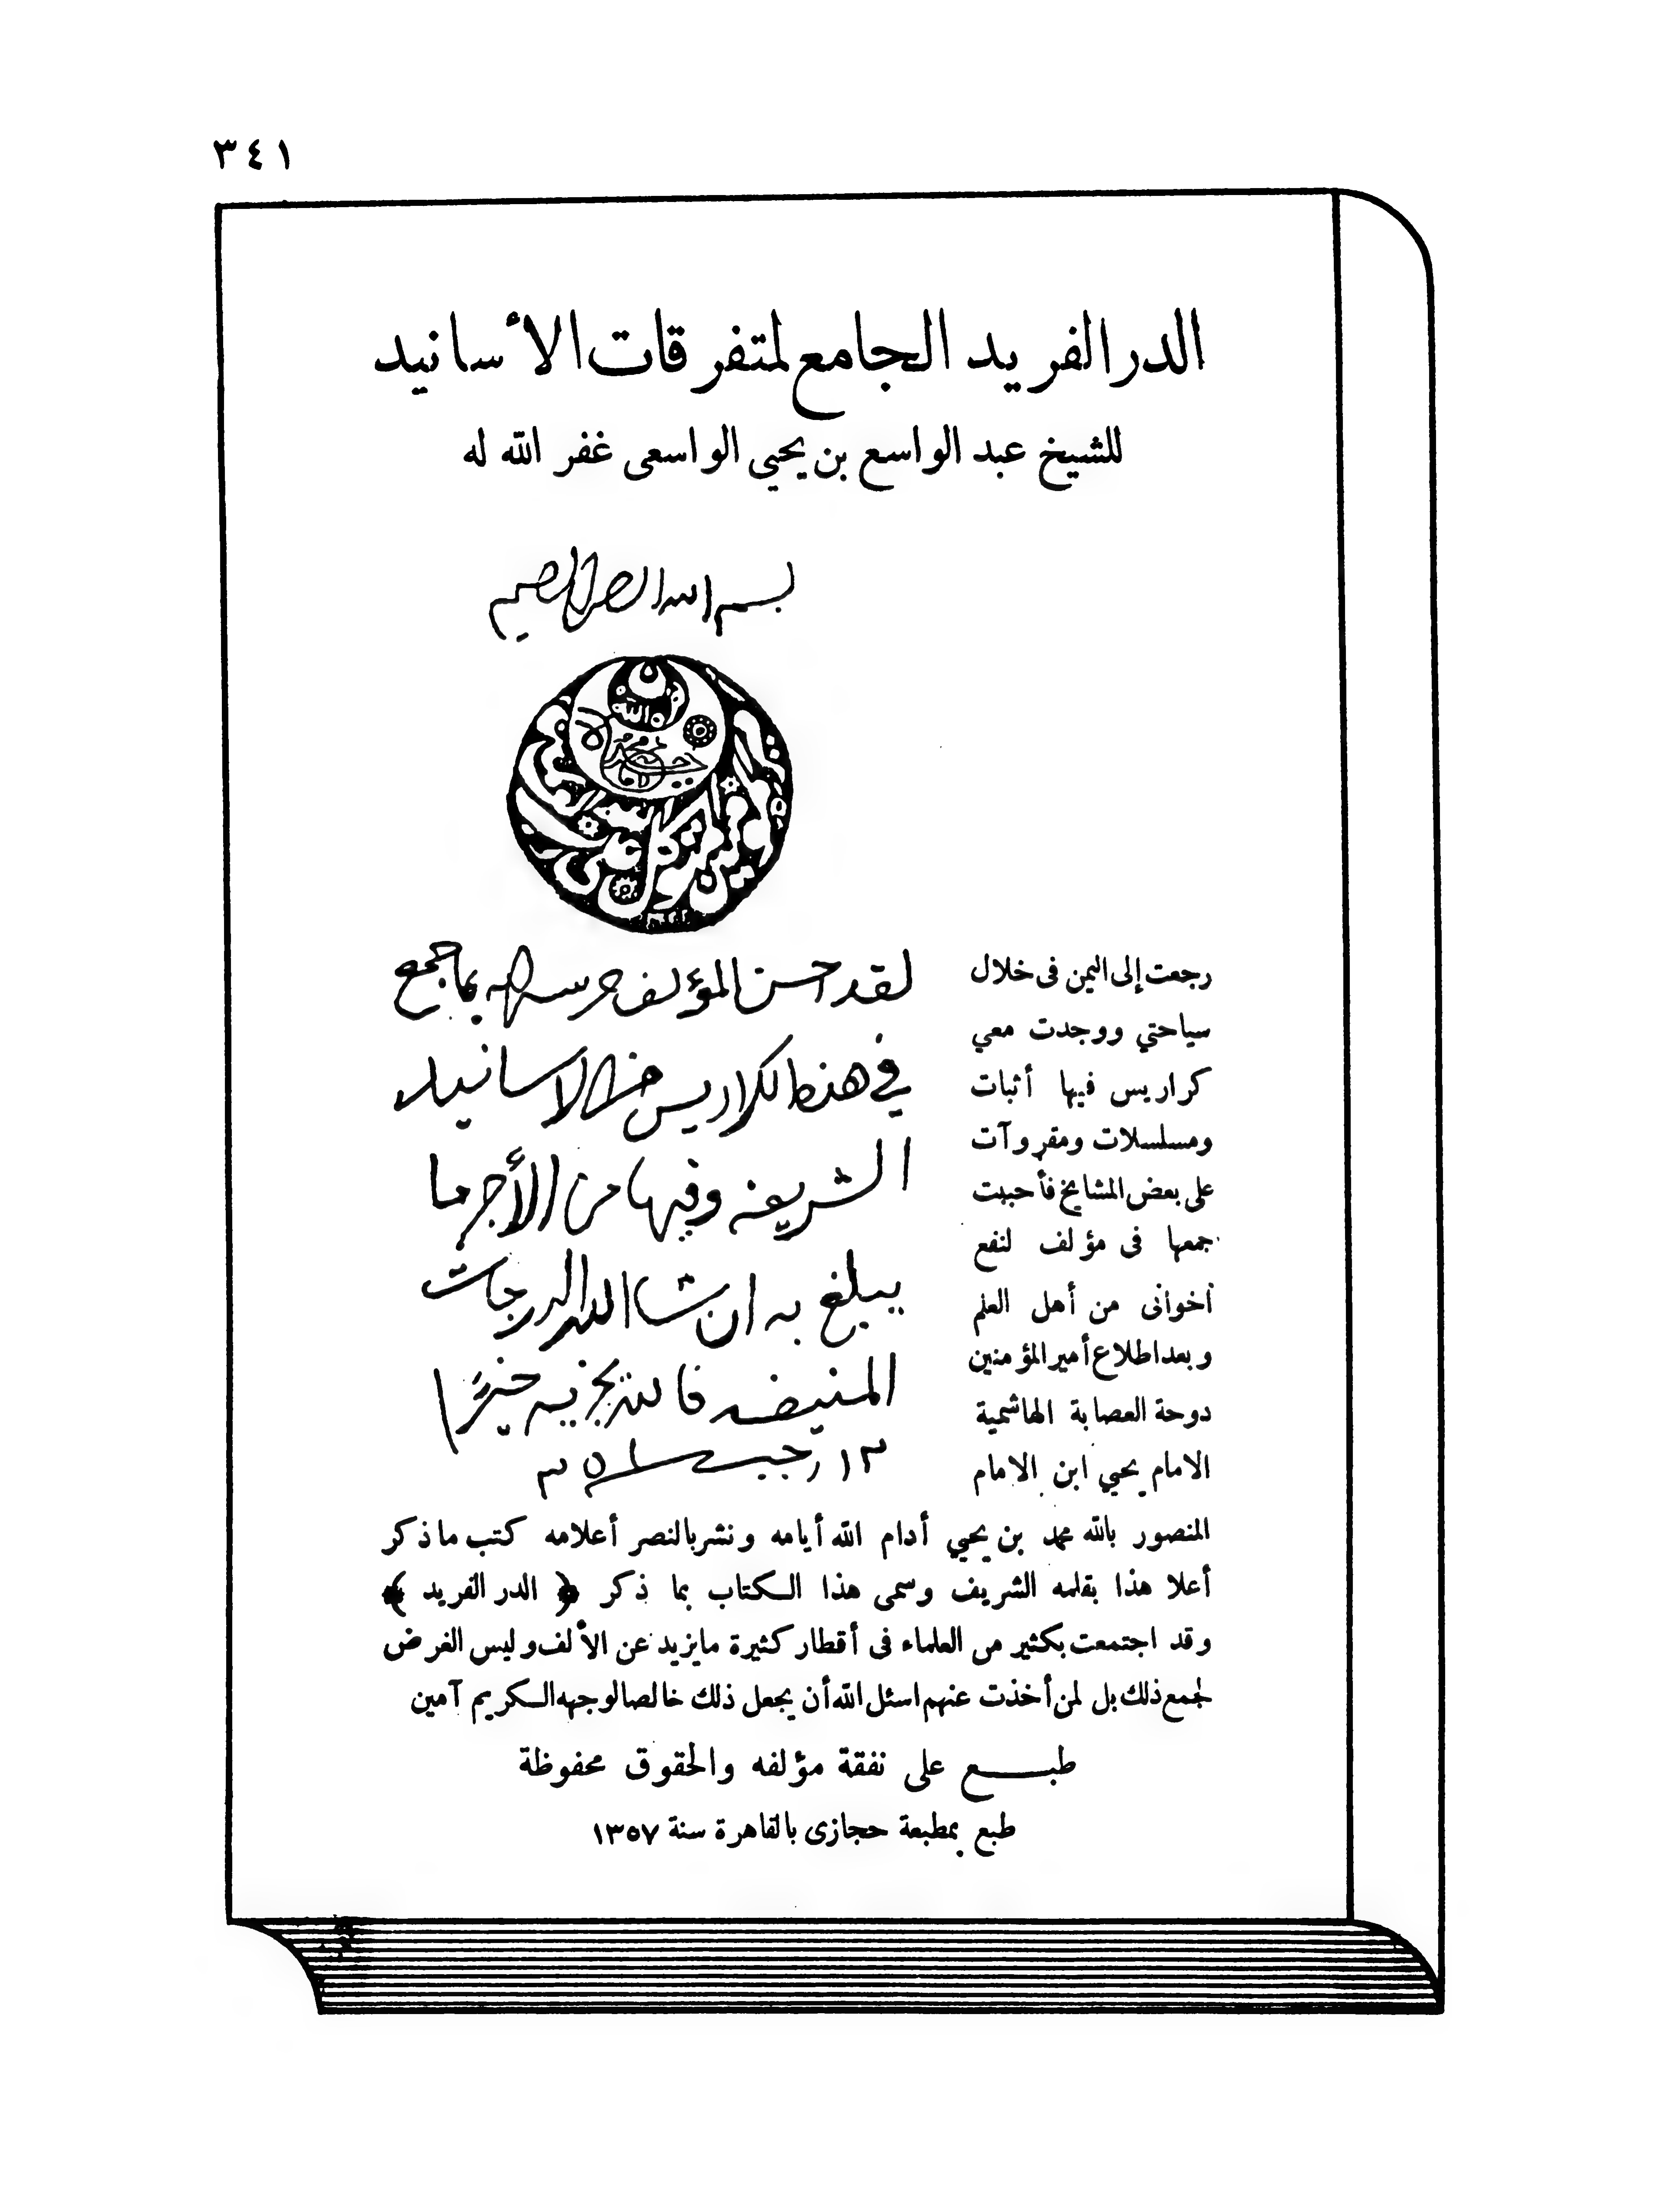 ٣٤١
الدر الفريد الجامع لمتفرقات الأسانيد
للشيخ عبد الواسع بن يحيى الواسعى غفر الله له
بسم الله الرحمن الرحيم
لقد احسن المؤلف حرسه الله بما جمع
في هذه الكراريس من الاسانيد
الشريفه وفيها من الأجر ما
يبلغ به ان شاء الله الدرجات
المنيفه فالله يجزيه خيرًا
١٣ رجب ٣٥١
رجعت إلى اليمن فى خلال
سياحتي ووجدت معي
كراريس فيها أثبات
ومسلسلات ومقروآت
على بعض المشايخ فأحببت
جمعها فى مؤلف لنفع
اخوانى من أهل العلم
وبعد اطلاع أمير المؤمنين
دوحة العصابة الهاشمية
الامام يحيى ابن الامام
المنصور بالله محمد بن يحيى أدام الله أيامه ونشر بالنصر أعلامه كتب ما ذكر
أعلا هذا بقلمه الشريف وسمى هذا الكتاب بما ذكر ﴿ الدر الفريد ﴾
وقد اجتمعت بكثير من العلماء فى أقطار كثيرة ما يزيد عن الألف وليس الغرض
لجمع ذلك بل لمن أخذت عنهم اسئل الله أن يجعل ذلك خالصا لوجهه الكريم آمين
طبع على نفقة مؤلفه والحقوق محفوظة
طبع بمطبعة حجازى بالقاهرة سنة ١٣٥٧